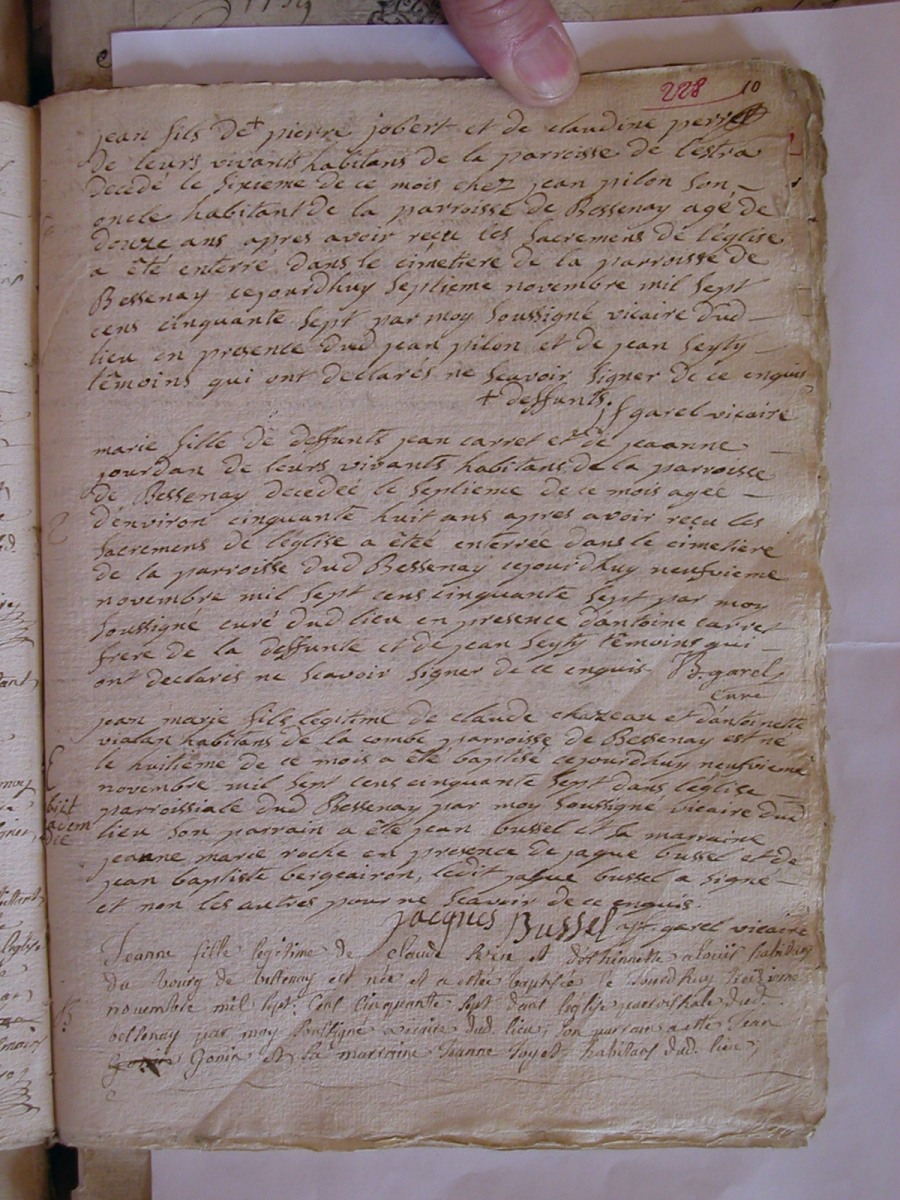 228 10
jean fils de + pierre jobert et de claudine perret
de leurs vivants habitans de la parroisse de l'estra
decedé le sixieme de ce mois chez jean pilon son
oncle habitant de la parroisse de Bessenay agé de
douze ans apres avoir reçu les sacremens de l'église
a êté enterré dans le cimetiere de la parroisse de
Bessenay cejourdhuy septieme novembre mil sept
cens cinquante sept par moy soussigné vicaire dud
lieu en presence dud jean pilon et de jean seyty
têmoins qui ont declarés ne sçavoir signer de ce enquis
+ deffunts. garel vicaire
marie fille de deffunts jean carret et de jeaanne
jourdan de leurs vivants habitans de la parroisse
de Bessenay decedeé le septieme de ce mois ageé
d'environ cinquante huit ans apres avoir reçu les
sacremens de l'église a êteé enterreé dans le cimetiere
de la parroisse dud Bessenay cejourdhuy neufvieme
novembre mil sept cens cinquante sept par moy
soussigné curé dud lieu en presence d'antoine carret
frere de la deffunte et de jean seyty têmoins qui
ont declarés ne sçavoir signer de ce enquis garel
curé
jean marie fils legitime de claude chazeau et d'antoinette
vialan habitans de la combe parroisse de Bessenay est né
le huitieme de ce mois a êté baptisé cejourdhuy neufvieme
novembre mil sept cens cinquante sept dans l'église
parroissiale dud Bessenay par moy soussigné vicaire dud
lieu son parrain a êté jean bussel et sa marraine
jeanne marie roche en presence de jaque bussel et de
jean baptiste bergeairon, ledit jaque bussel a signé
et non les autres pour ne sçavoir de ce enquis.
jacques Bussel garel vicaire
Jeanne fille legitime de claude et d'othiennette habitans
du bourg de bessenay est née et a estée baptisée le jourdhuy treizieme
novembre mil sept cent cinquante sept dans l'eglise parroissiale dud.
bessenay par moy soussigné vicaire dud. lieu, son parrain a esté Jean
Gonin et la marraine Jeanne habitans dud. lieu,